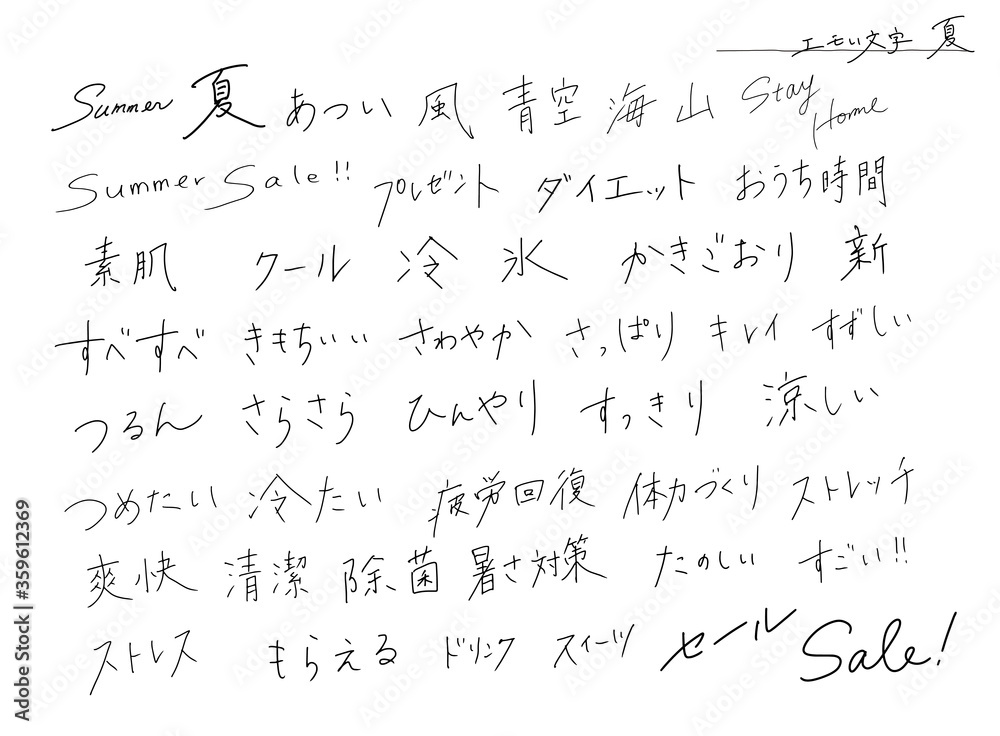 エモい文字 夏
Summer 夏 あつい 風 青空 海 山 Stay Home
Summer Sale!! プレゼント ダイエット おうち時間
素肌 クール 冷 氷 かきごおり 新
すべすべ きもちいい さわやか さっぱり キレイ すずしい
つるん さらさら ひんやり すっきり 涼しい
つめたい 冷たい 疲労回復 体力づくり ストレッチ
爽快 清潔 除菌 暑さ対策 たのしい すごい!!
ストレス もらえる ドリンク スイーツ セール Sale!
Adobe Stock | #359612369